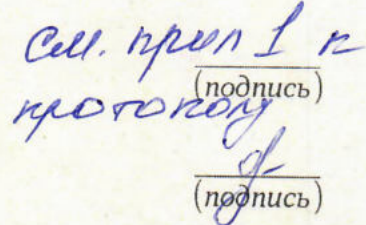 см. прил 1 к
(подпись)
протоколу
(подпись)